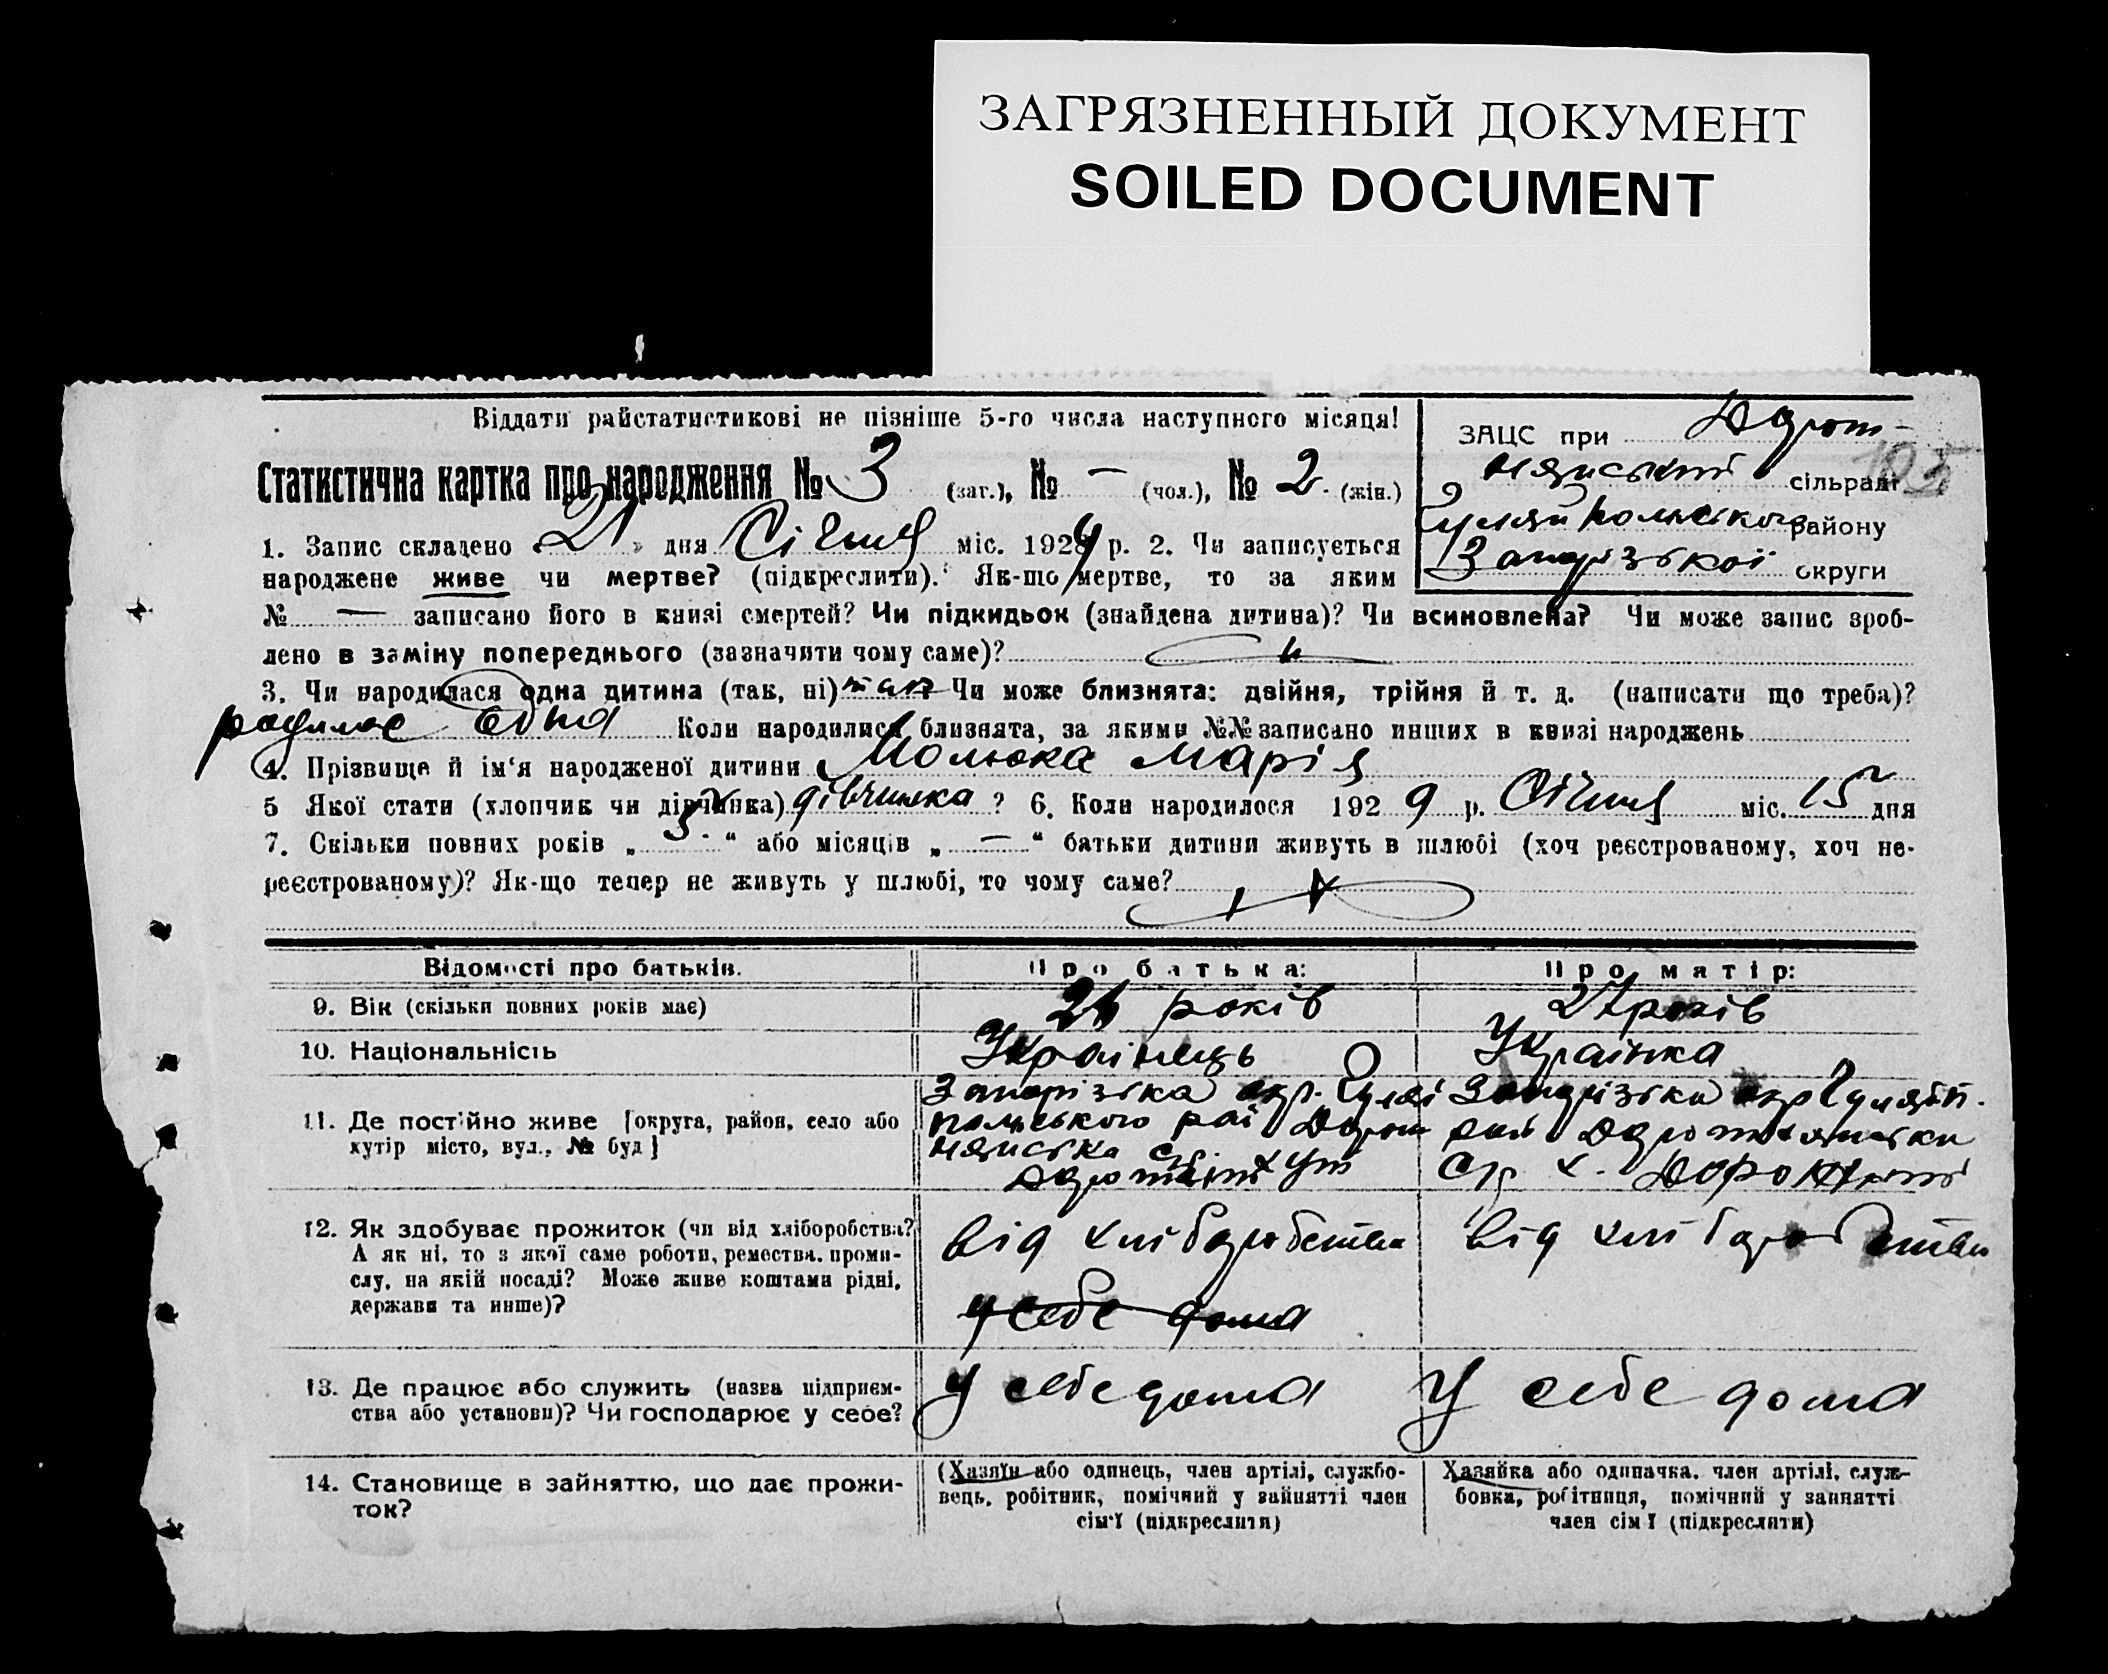 ЗАГРЯЗНЕННЫЙ ДОКУМЕНТ
SOILED DOCUMENT
Віддати райстатистикові не пізніше 5-го числа наступного місяця!
ЗАЦС при Дорот-
сільраді
Гуляйпольського району
Запорізької округи
Статистична картка про народження № 3 (заг.), № — (чол.), № 2 (жін.)
1. Запис складено „21" дня Січня міс. 1929 р. 2. Чи записується
народжене живе чи мертве? (підкреслити). Як-що мертве, то за яким
№ — записано його в книзі смертей? Чи підкидьок (знайдена дитина)? Чи всиновлена? Чи може запис зроб-
лено в заміну попереднього (зазначити чому саме)?
3. Чи народилася одна дитина (так, ні) так Чи може близнята: двійня, трійня й т. д. (написати що треба)?
родилас одна Коли народилися близнята, за якими №№ записано инших в книзі народжень
4. Прізвище й ім'я народженої дитини Молюка Марія
5 Якої стати (хлопчик чи дівчинка) дівчинка? 6. Коли народилося 1929 р. Січня міс. 15 дня
7. Скільки повних років „5" або місяців „—" батьки дитини живуть в шлюбі (хоч реєстрованому, хоч не-
реєстрованому)? Як-що тепер не живуть у шлюбі, то чому саме?
Відомості про батьків. Про батька: Про матір:
9. Вік (скільки повних років має) років років
10. Національність Українець Українка
11. Де постійно живе [округа, район, село або
хутір місто, вул., № буд]
Запорізька окр. Гуляй Запорізька окр Гуляйп.
польського рай Дорот рай
ср. х.
12. Як здобуває прожиток (чи від хліборобства?
А як ні, то з якої саме роботи, ремества, проми-
слу, на якій посаді? Може живе коштами рідні,
держави та инше)?
від хліборобства від хліборобства
у себе дома
13. Де працює або служить (назва підприєм-
ства або установи)? Чи господарює у себе?
у себе дома У себе дома
14. Становище в зайняттю, що дає прожи-
ток?
(Хазяїн або одинець, член артілі, службо-
вець, робітник, помічний у зайнятті член
сім'ї (підкреслити)
Хазяйка або одиначка, член артілі, служ-
бовка, робітниця, помічний у зайнятті
член сім'ї (підкреслити)